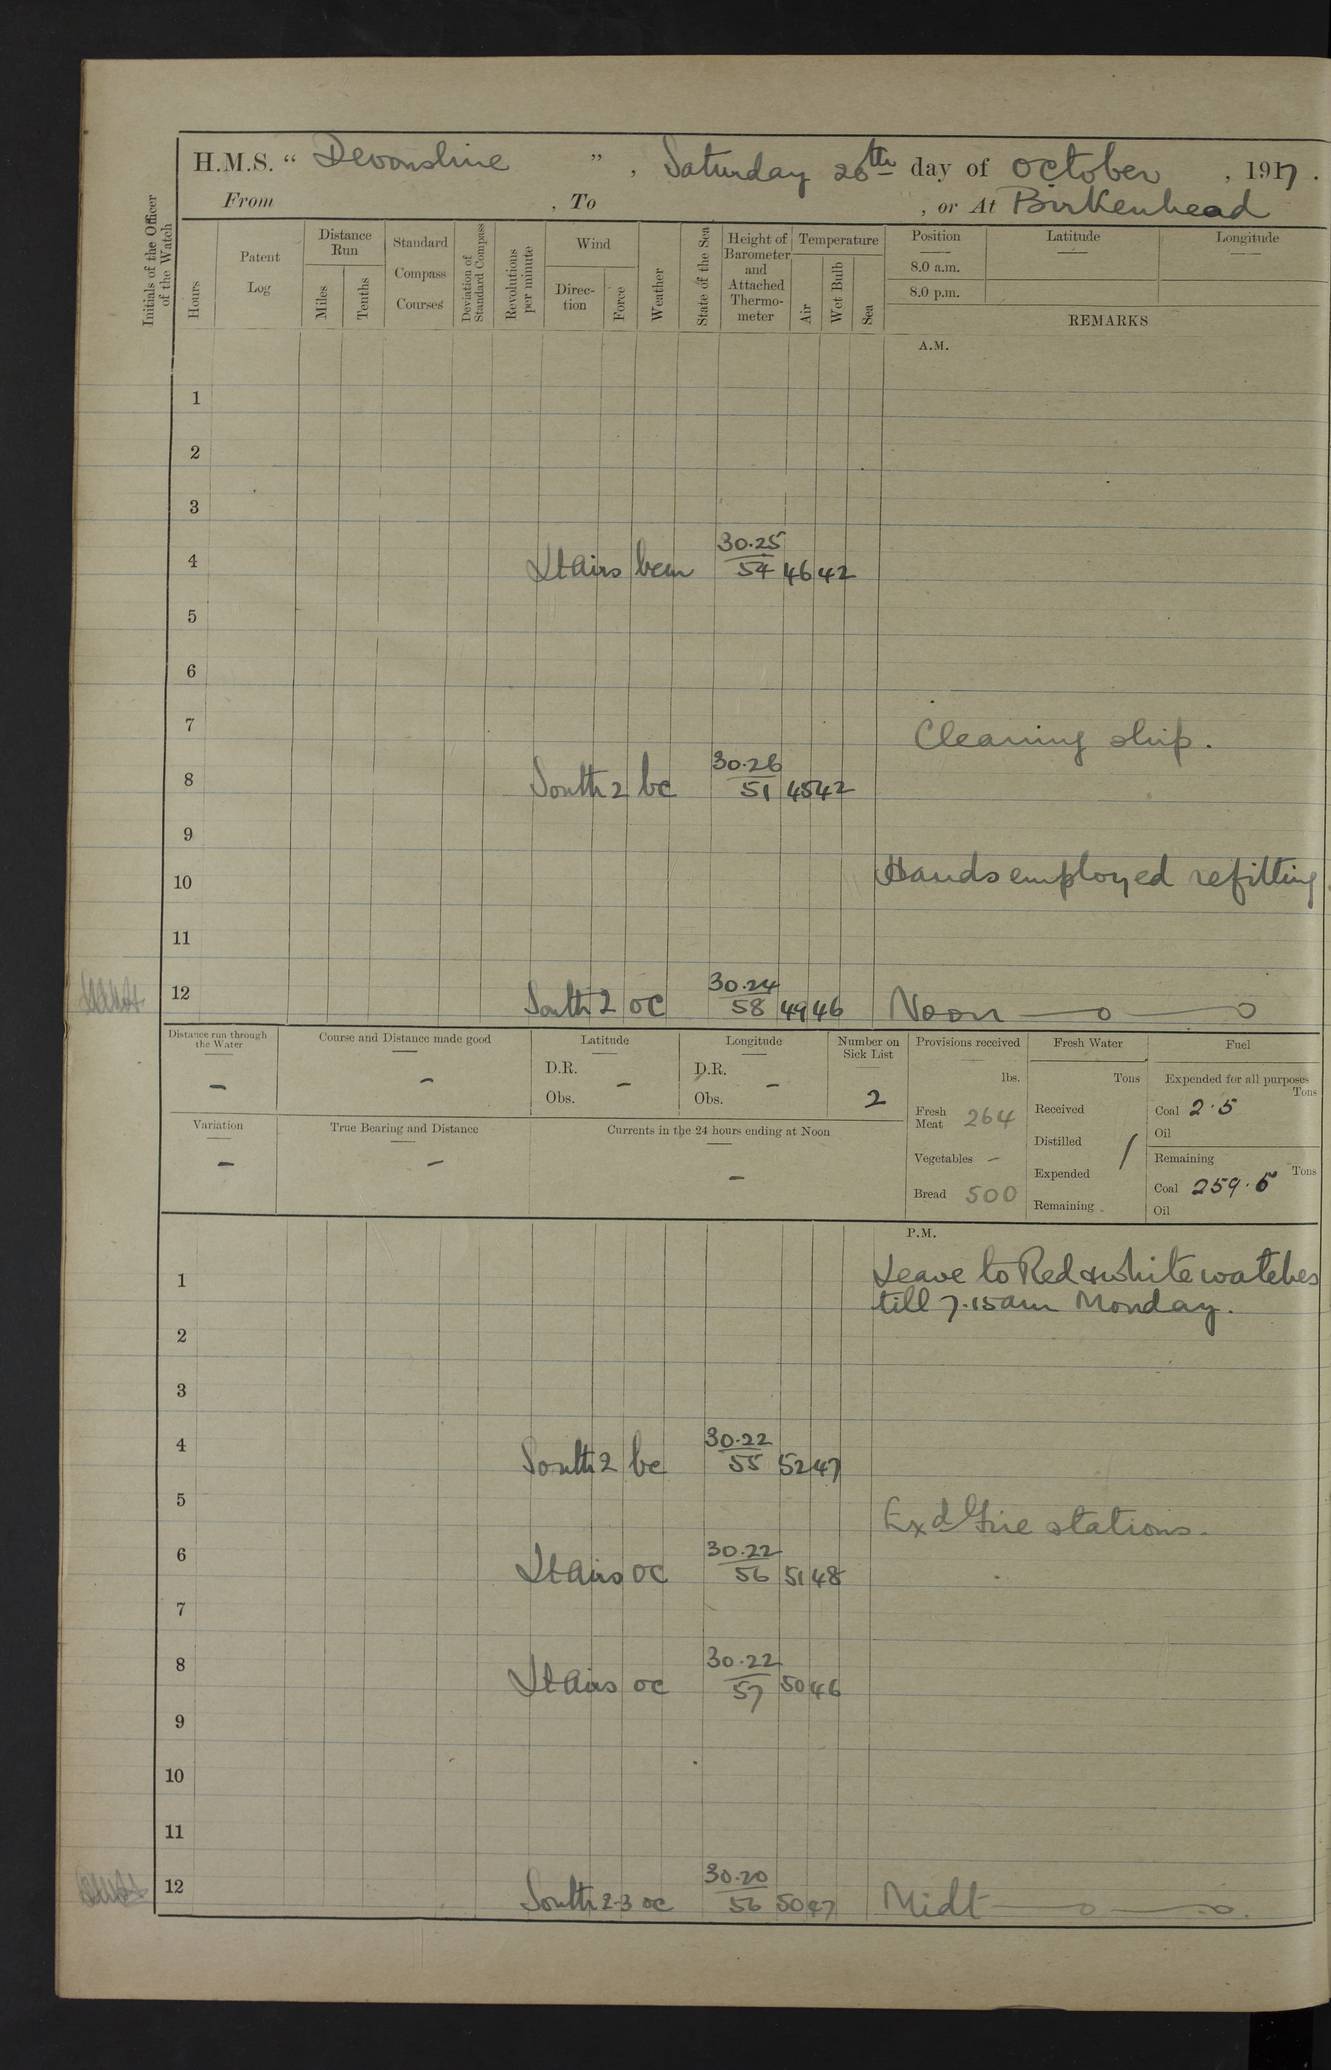 H.M.S. “ Devonshire ” , Saturday 20th day of October , 1917 .
From , To , or At Birkenhead
Initials of the Officer of the Watch
Hours
Patent Log
Distance Run
Miles
Tenths
Standard Compass Courses
Deviation of Standard Compass
Revolutions per minute
Wind
Direction
Force
Weather
State of the Sea
Height of Barometer and Attached Thermometer
Temperature
Air
Wet Bulb
Sea
Position
Latitude
Longitude
8.0 a.m.
8.0 p.m.
REMARKS
A.M.
1
2
3
4 Lt airs bcm 30.25 54 46 42
5
6
7 Cleaning ship.
8 South 2 bc 30.26 51 45 42
9
10 Hands employed refitting
11
12 South 2 oc 30.24 58 49 46 Noon
Distance run through the Water –
Course and Distance made good –
Latitude D.R. Obs. –
Longitude D.R. Obs. –
Number on Sick List 2
Provisions received lbs.
Fresh Meat 264
Vegetables –
Bread 500
Fresh Water Tons
Received
Distilled
Expended
Remaining
Fuel
Expended for all purposes Tons
Coal 2.5
Oil
Remaining Tons
Coal 259.5
Oil
Variation –
True Bearing and Distance –
Currents in the 24 hours ending at Noon –
P.M.
1 Leave to Red & White watches
till 7.15am Monday.
2
3
4 South 2 bc 30.22 55 52 47
5 Exd Fire stations.
6 Lt airs oc 30.22 56 51 48
7
8 Lt airs oc 30.22 57 50 46
9
10
11
12 South 2-3 oc 30.20 56 50 47 Midt